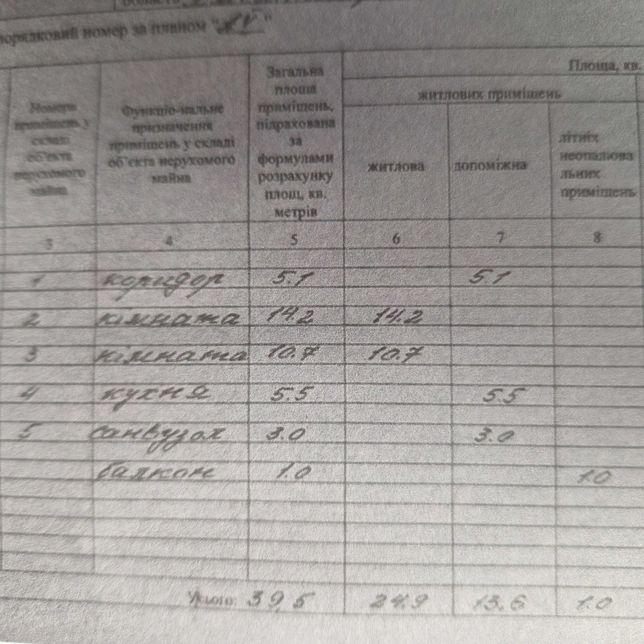 порядковий номер за планом "XV"
Площа, кв.
Номери приміщень у складі об'єкта нерухомого майна
Функціо-нальне призначення приміщень у складі об'єкта нерухомого майна
Загальна площа приміщень, підрахована за формулами розрахунку площ, кв. метрів
житлових приміщень
житлова
допоміжна
літніх неопалювальних приміщень
3 4 5 6 7 8
1 коридор 5.1 5.1
2 кімната 14.2 14.2
3 кімната 10.7 10.7
4 кухня 5.5 5.5
5 санвузол 3.0 3.0
балкон 1.0 1.0
Усього: 39,5 24.9 13.6 1.0